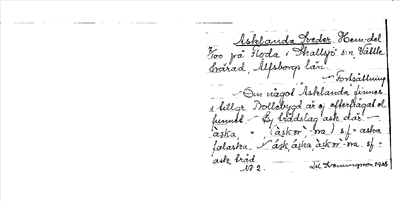 Asklanda Sveder. Hem.del
700 på Floda i Skallsjö s:n, Vättle
härad, Älfsborgs län.
— Fortsättning
— Om något Asklanda finnes
i tillgr. Bollebygd är ej efterfrågat el.
funnet. — Ej trädslag ask där. —
àska, " , (àskor -na) sf = aska
falaska. àsk, áska, àskor -na. sf =
ask träd
No 2. 1925